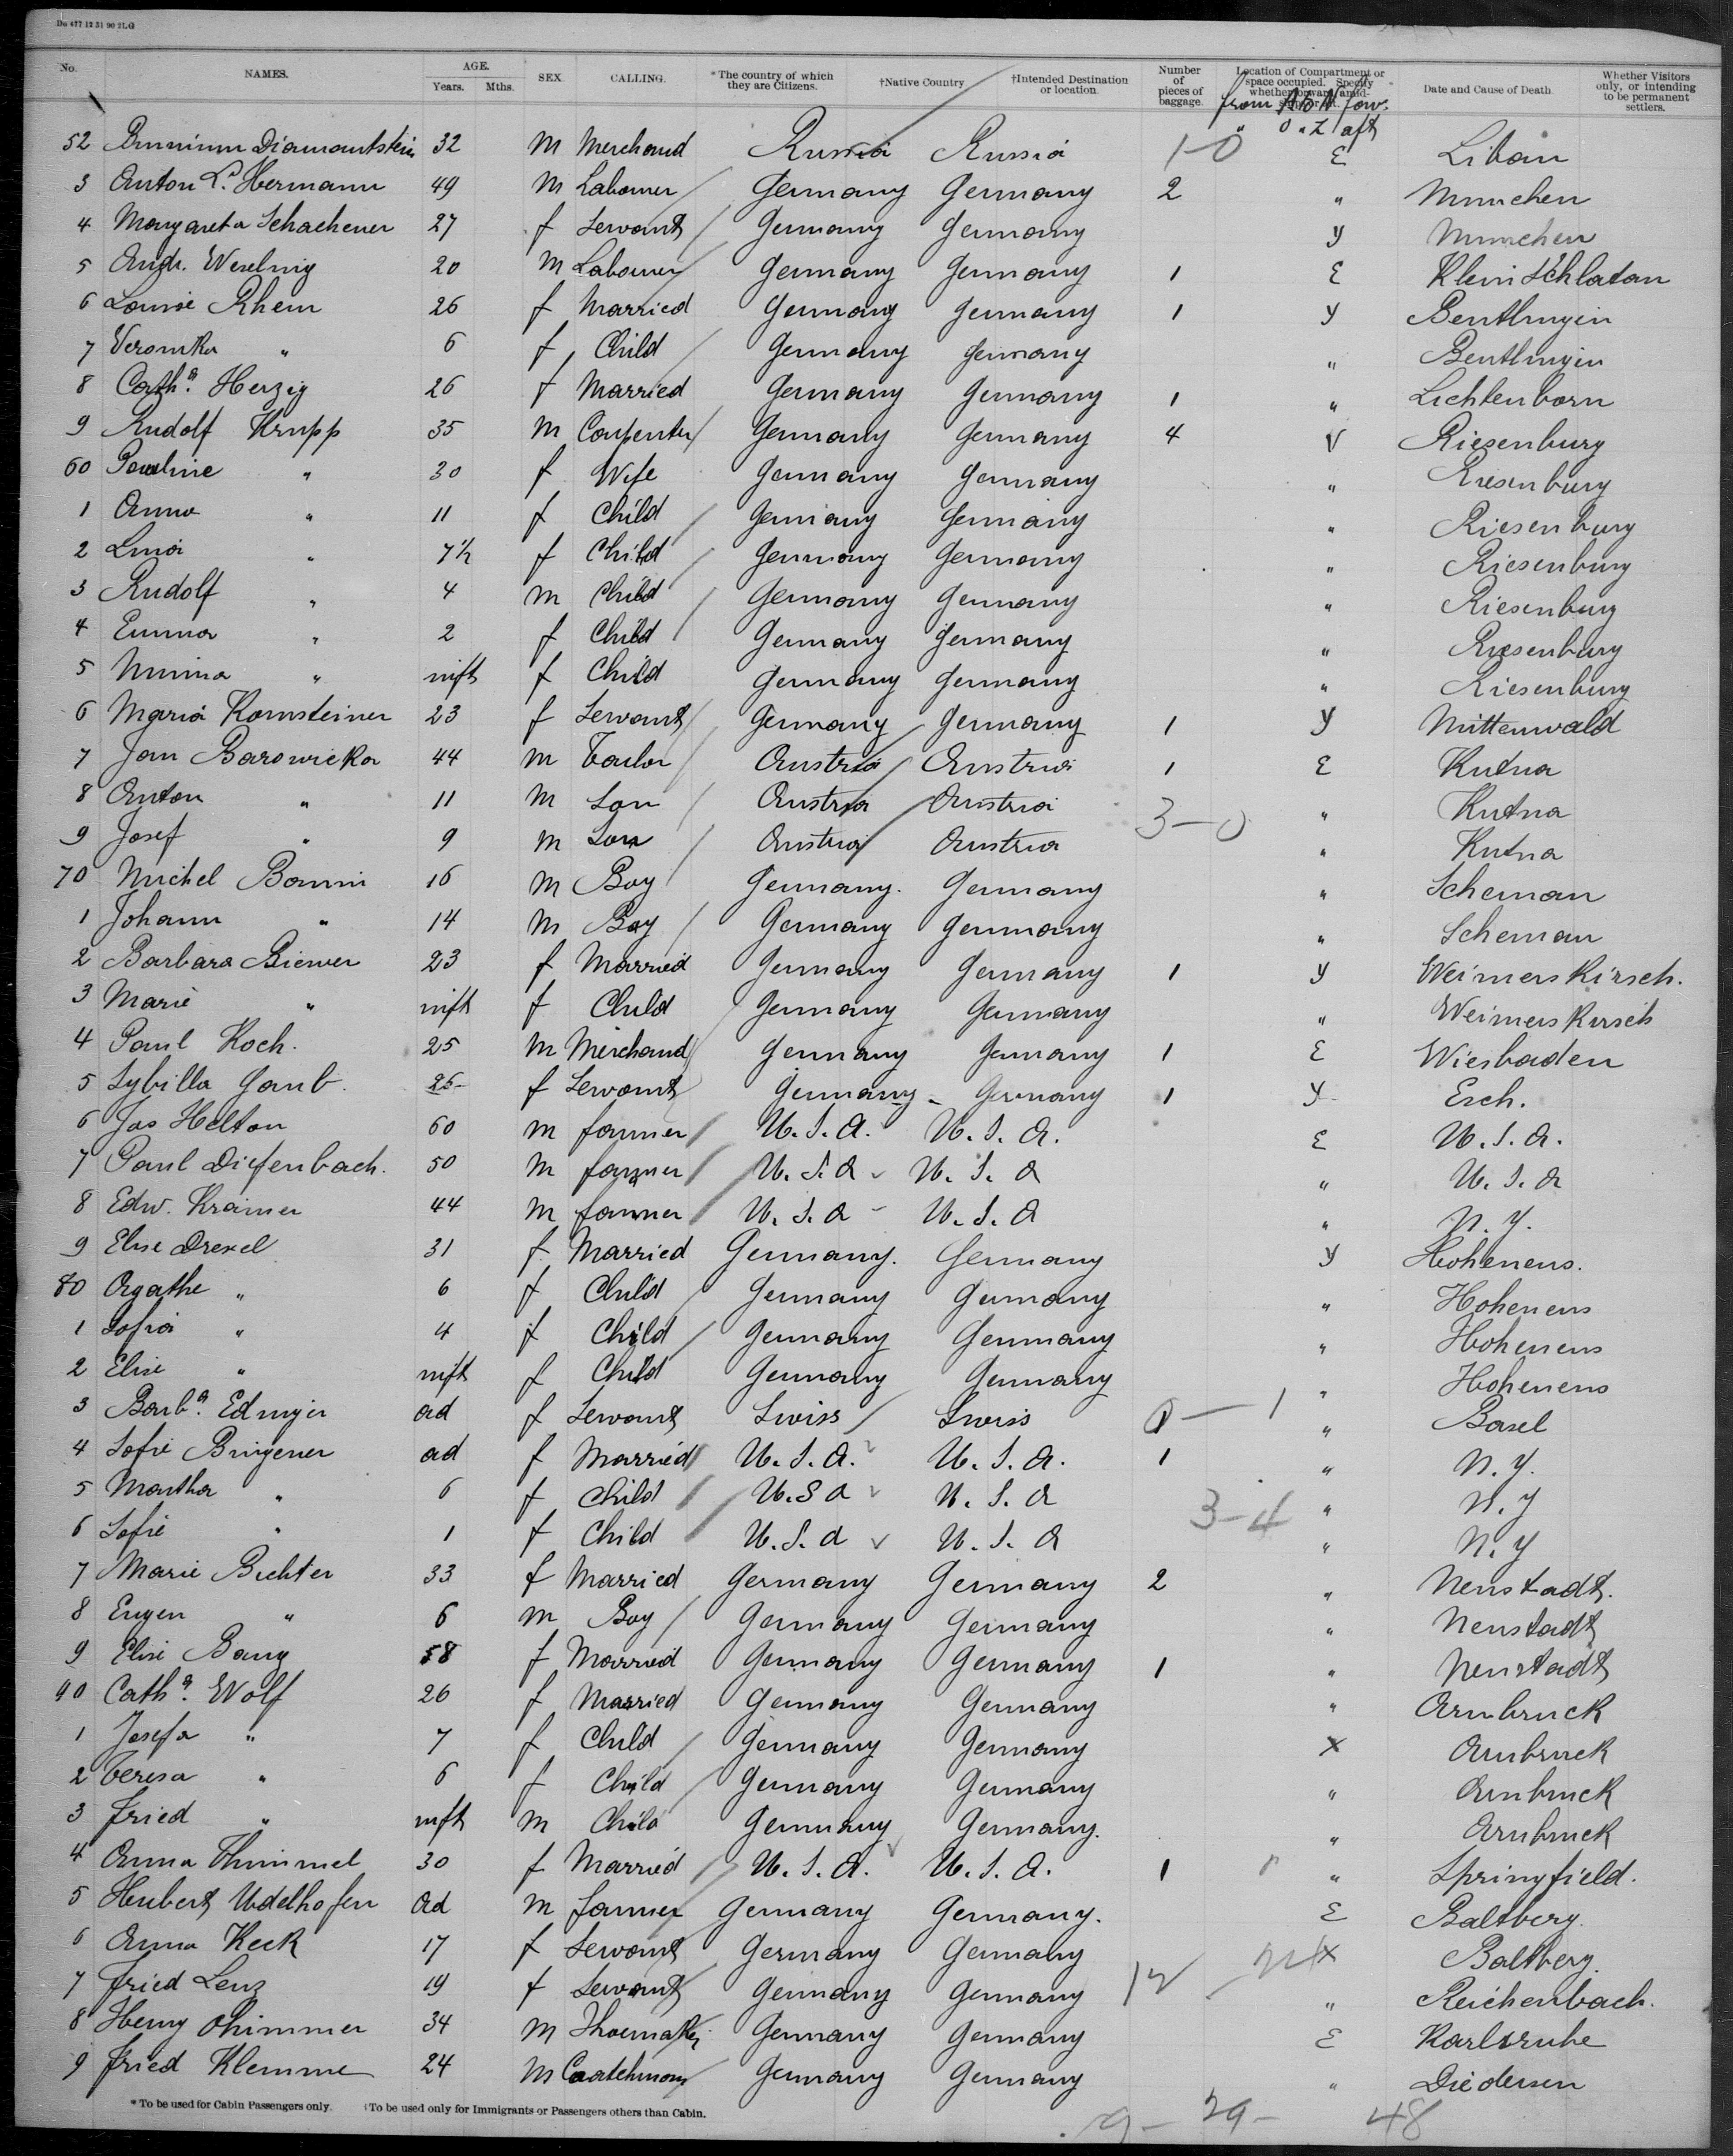 Do 477 12 31 90 2LG
No. NAMES. AGE. Years. Mths. SEX. CALLING. *The country of which they are Citizens. †Native Country †Intended Destination or location. Number of pieces of baggage. Location of Compartment or space occupied. Specify whether forward, amid- Date and Cause of Death. Whether Visitors only, or intending to be permanent settlers.
from A to N forw.
" O " Z aft
52 Diamantstein 32 M Merchand Russia Russia 1-0 E Libau
3 Anton L. Hermann 49 M Labourer Germany Germany 2 " Munchen
4 Margareta Schachener 27 f Servant Germany Germany y Munchen
5 Andr. 20 M Labourer Germany Germany 1 E Klein Schlatan
6 Louise Rhein 26 f Married Germany Germany 1 y
7 Veronika " 6 f Child Germany Germany "
8 Catha. Herzig 26 f Married Germany Germany 1 " Lichtenborn
9 Rudolf Krupp 35 M Carpenter Germany Germany 4 V Riesenburg
60 Pauline " 30 f Wife Germany Germany " Riesenburg
1 Anna " 11 f Child Germany Germany " Riesenburg
2 Lina " 7½ f Child Germany Germany " Riesenburg
3 Rudolf " 4 m Child Germany Germany " Riesenburg
4 Emma " 2 f Child Germany Germany " Riesenburg
5 Minna " inft f Child Germany Germany " Riesenburg
6 Maria Kornsteiner 23 f Servant Germany Germany 1 y Mittenwald
7 Jan Barowicka 44 m Tailor Austria Austria 1 E Kutna
8 Anton " 11 M Son Austria Austria 3-0 " Kutna
9 Josef " 9 m Son Austria Austria " Kutna
70 Michel 16 M Boy Germany. Germany " Scheman
1 Johann " 14 M Boy Germany Germany " Scheman
2 Barbara Biewer 23 f Married Germany Germany 1 y Weimerskirsch.
3 Marie " inft f Child Germany Germany " Weimerskirsch
4 Paul Koch. 25 M Merchand Germany Germany 1 E Wiesbaden
5 Sybilla Gaub. 25 f Servant Germany Germany 1 y Esch.
6 Jas Helton 60 m farmer U.S.A. U.S.A. E U.S.A.
7 Paul Diefenbach. 50 M farmer U.S.A U.S.A " U.S.A
8 Edw. Kramer 44 M farmer U.S.A U.S.A " N.Y.
9 Elise Drexel 31 f Married Germany. Germany y Hohenens.
80 Agathe " 6 f Child Germany Germany " Hohenens
1 Sofia " 4 f Child Germany Germany " Hohenens
2 Elise " inft f Child Germany Germany " Hohenens
3 Barba. ad f Servant Swiss Swiss 0-1 " Basel
4 Sofie Bringener ad f Married U.S.A. U.S.A. 1 " N.Y.
5 Martha " 6 f Child U.S.A U.S.A " N.Y
6 Sofie " 1 f Child U.S.A U.S.A 3-4 " N.Y
7 Marie Richter 33 f Married Germany Germany 2 " Neustadt.
8 Eugen " 6 m Boy Germany Germany " Neustadt
9 Elise Bang 58 f Married Germany Germany 1 " Neustadt
90 Catha. Wolf 26 f Married Germany Germany " Arnbruck
1 Josefa " 7 f Child Germany Germany X Arnbruck
2 Teresa " 6 f Child Germany Germany " Arnbruck
3 Fried " inft M Child Germany Germany. " Arnbruck
4 Anna Thimmel 30 f Married U.S.A. U.S.A. 1 " Springfield.
5 Hubert Udelhofen ad M farmer Germany Germany. E Baltberg.
6 Anna Keck 17 f Servant Germany Germany X Baltberg.
7 Fried Lenz 19 f Servant Germany Germany 12 " Reichenbach.
8 Henry Ohimmer 34 M Shoemaker Germany Germany E Karlsruhe
9 Fried Klemme 24 M Coatchman Germany Germany " Diedersen
*To be used for Cabin Passengers only. †To be used only for Immigrants or Passengers others than Cabin.
9- 29- 48